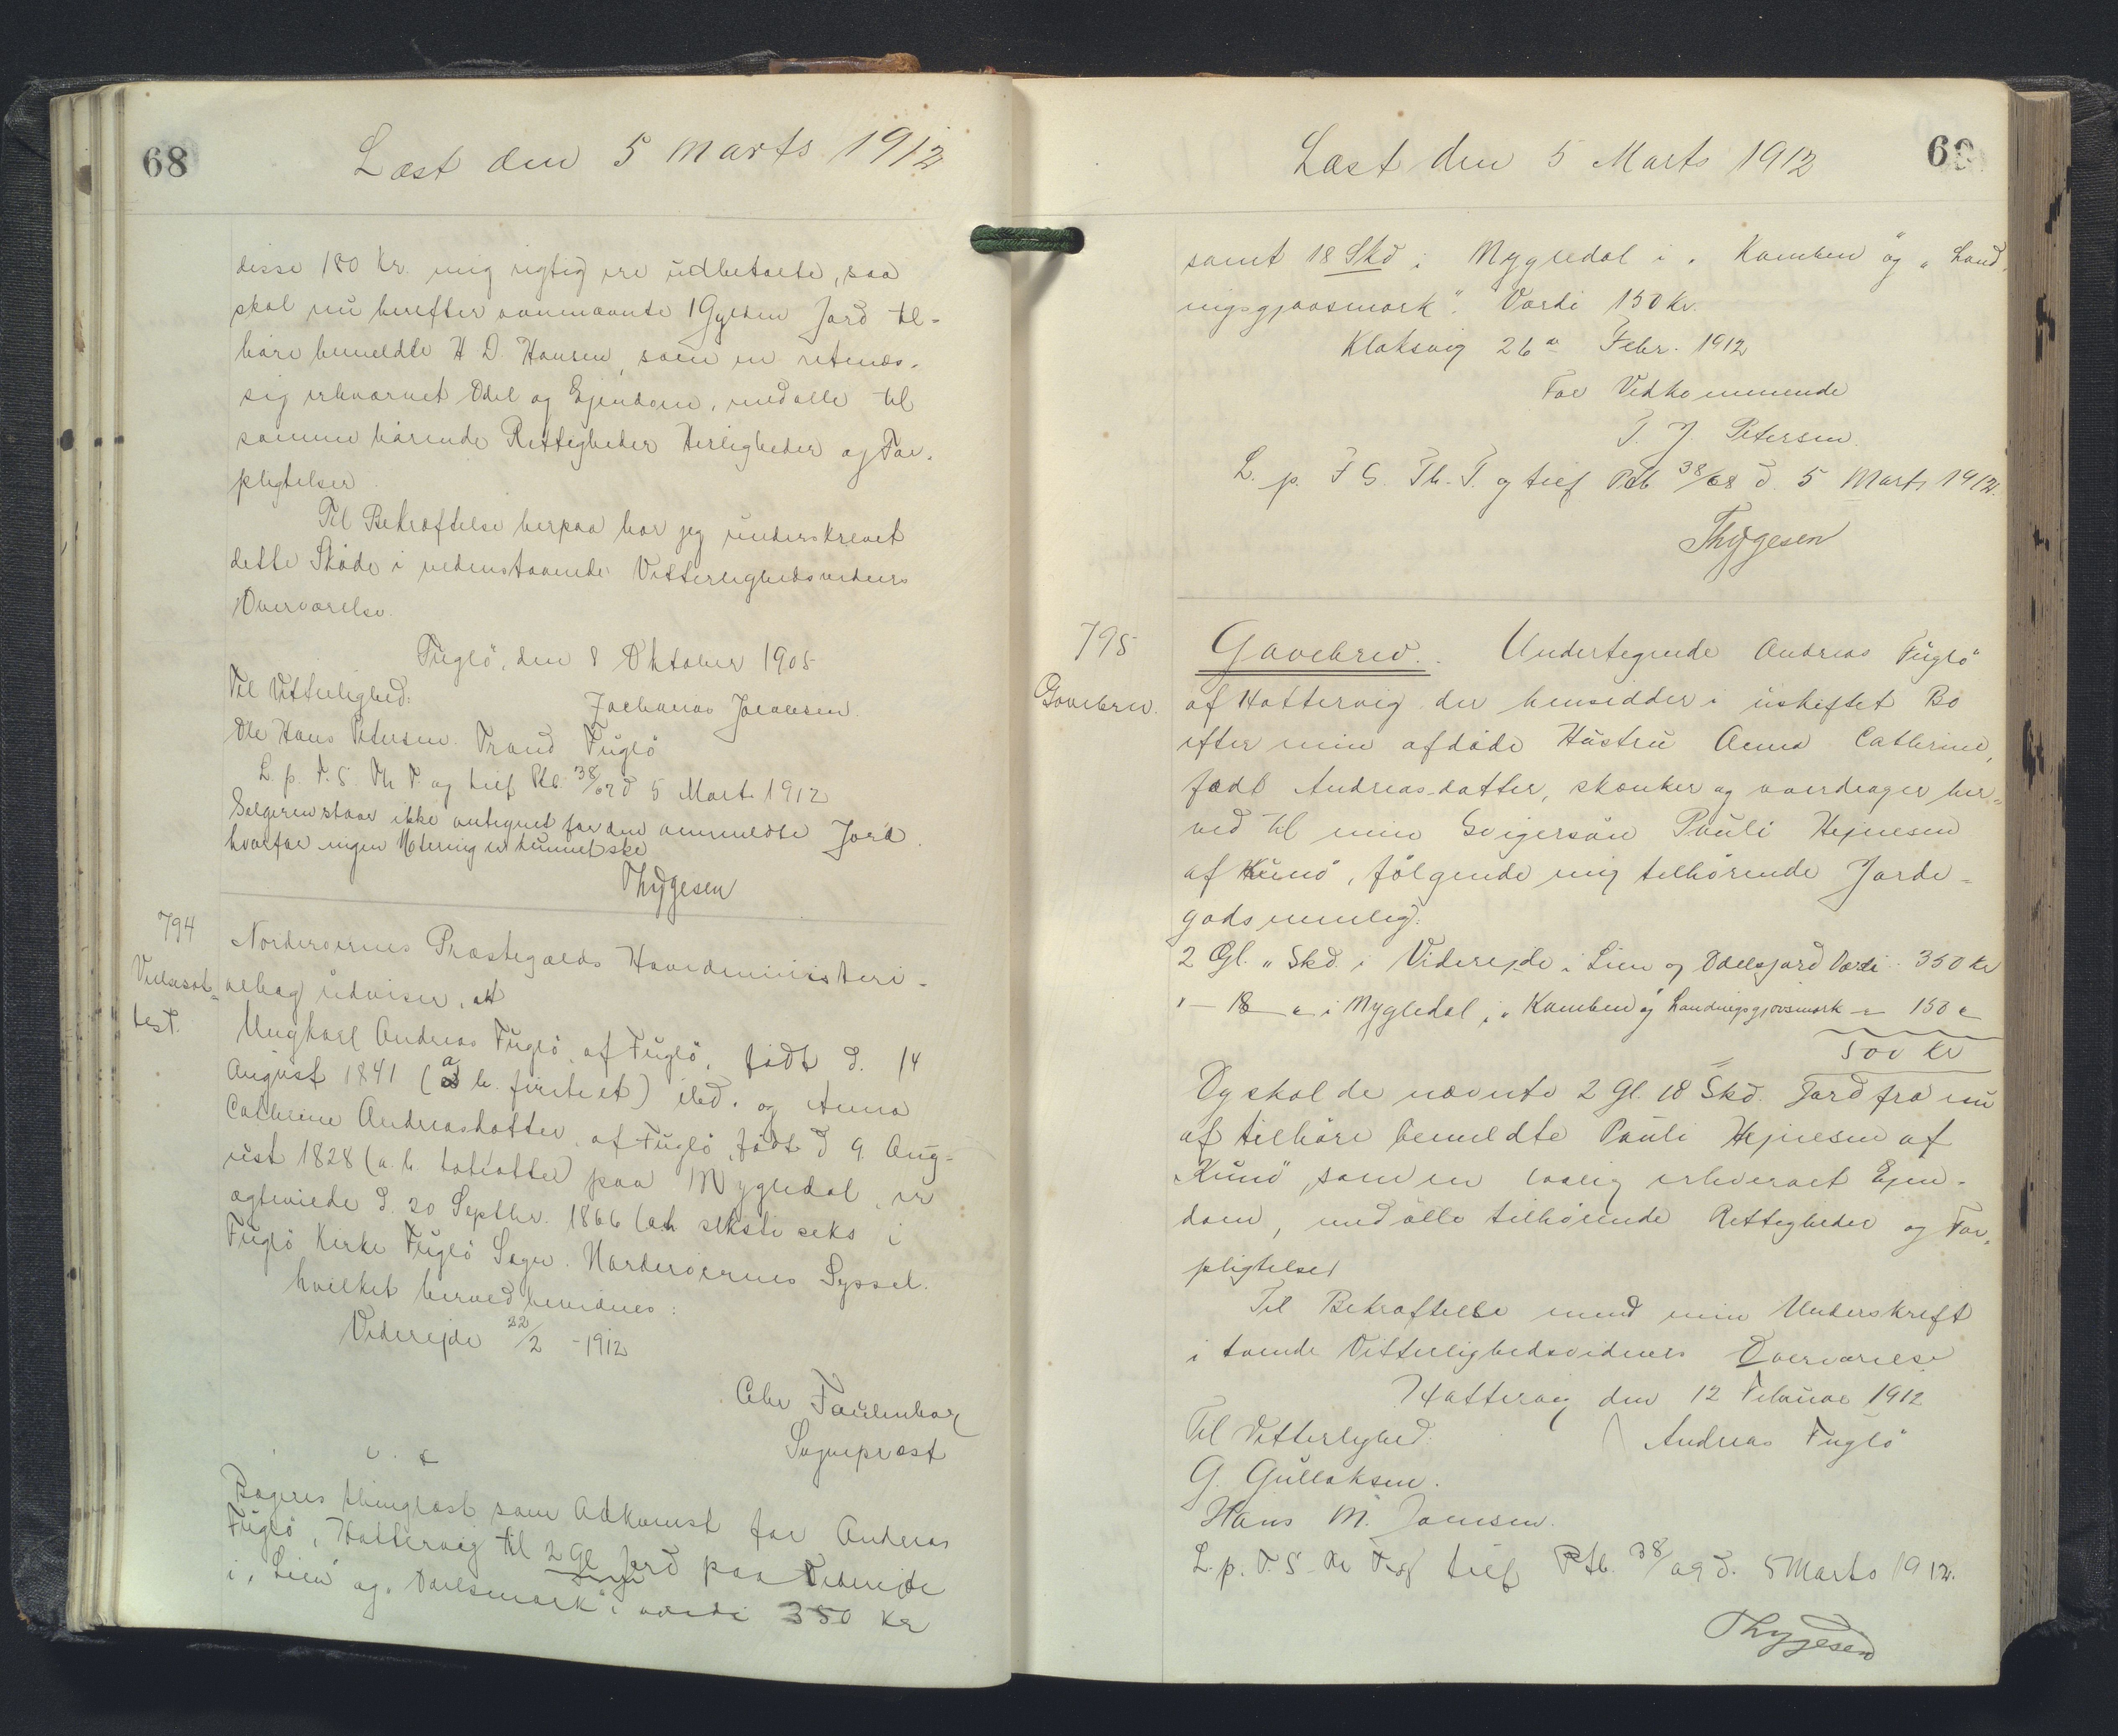 68
Læst den 5 Marts 1912
disse 180 Kr. mig rigtig ere udbetalte, saa
skal nu herefter ovennævnte 1 Gylden Jord til-
høre bemeldte H D. Hansen, som en retmæs-
sig erhvervet Odel og Ejendom, med alle til
samme hørende Rettigheder Herligheder og For-
pligtelser
Til Bekræftelse herpaa har jeg underskrevet
dette Skøde i nedenstaaende Vitterlighedsvidners
Overværelse.
Fuglö, den 8 Oktober 1905
Til Vitterlighed:
Zacharias Jacobsen.
Ole Hans Petersen. Trand Fuglö
L. p. F. S. Th T. og tief Ptb. 38/67 d 5 Marts 1912
Sælgeren staar ikke antegnet for den anmeldte Jord
hvorfor ingen Notering er kunnet ske
Thygesen
794
Vielsesat-
test.
Norderøernes Præstegælds Hovedministeri-
albog udviser, at
Ungkarl Andreas Fuglö, af Fuglö, født d. 14
August 1841 (a. h. firti et) ibd. og Anna
Cathrine Andreasdatter, af Fuglö, født d 9. Aug-
ust 1828 (a. h. toti otte) paa Mygledal, er
ægteviede d. 20 Septbr. 1866 (a h seksti seks i
Fuglö Kirke Fuglö Sogn. Norderøernes Syssel.
hvilket herved bevidnes:
Viderejde 22/2 - 1912
Sognepræst
Begeres thinglæst som Adkomst for Andreas
Fuglö, Hattervig til 2 Gl Jord paa Viderejde
i „Lien" og „Dalsmark" i værdi 350 Kr
69
Læst den 5 Marts 1912
samt 18 Skd i Mygledal i „Kamben" og „Land-
ingsgjaasmark". Værdi 150 Kr.
Klaksvig 26 Febr. 1912
For Vedkommende
T. J. Petersen.
L. p. F S. Th. T. og tief Ptb 38/68 d. 5 Marts 1912.
Thygesen
795
Gavebrev.
Gavebrev. Undertegnede Andreas Fuglö
af Hattervig der hensidder i uskiftet Bo
efter min afdøde Hustru Anna Cathrine,
født Andreasdatter, skænker og overdrager her-
ved til min Svigersøn Pauli Hejnesen
af Kunö, følgende mig tilhørende Jorde-
gods nemlig:
2 Gl. „ Skd. i Viderejde i Lien og Dalsjord Værdi 350 Kr
" — 18 — „ i Mygledal i „Kamben og Landingsgjovsmark — „ 150 „
500 Kr
Og skal de nævnte 2 Gl. 18 Skd. Jord fra nu
af tilhøre bemeldte Pauli Hejnesen af
Kunö, som en lovlig erhvervet Ejen-
dom, med alle tilhørende Rettigheder og For-
pligtelser
Til Bekræftelse med min Underskrift
i tvende Vitterlighedsvidners Overværelse
Hattervig den 12 Februar 1912
Til Vitterlighed:
Andreas Fuglö
G. Gullaksen.
Hans M. Joensen.
L. p. F. S. Th T og tief Ptb. 38/69 d. 5 Marts 1912.
Thygesen